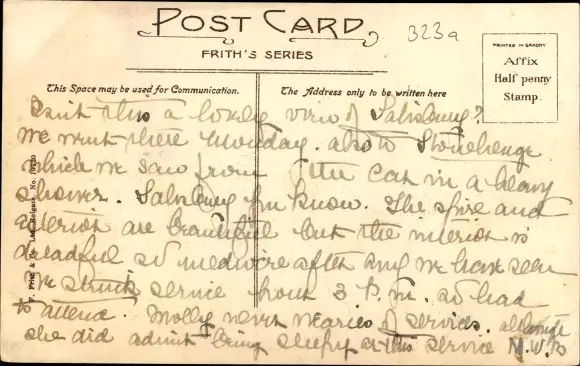 POST CARD
323a
FRITH'S SERIES
PRINTED IN SAXONY
Affix
Half penny
Stamp.
This Space may be used for Communication.
The Address only to be written here
Isn't this a lovely view of Salisbury?
We went there Monday. also to Stonehenge
which we saw from the car in a heavy
shower. Salisbury you know. The spire and
exterior are beautiful but the interior is
dreadful so mediocre after any we have seen
We struck service from 3 P.m. so had
to attend. Molly never wearies of services. although
she did admit being sleepy at this service M.W.B
F. Frith & Co. Ltd. Reigate. No.